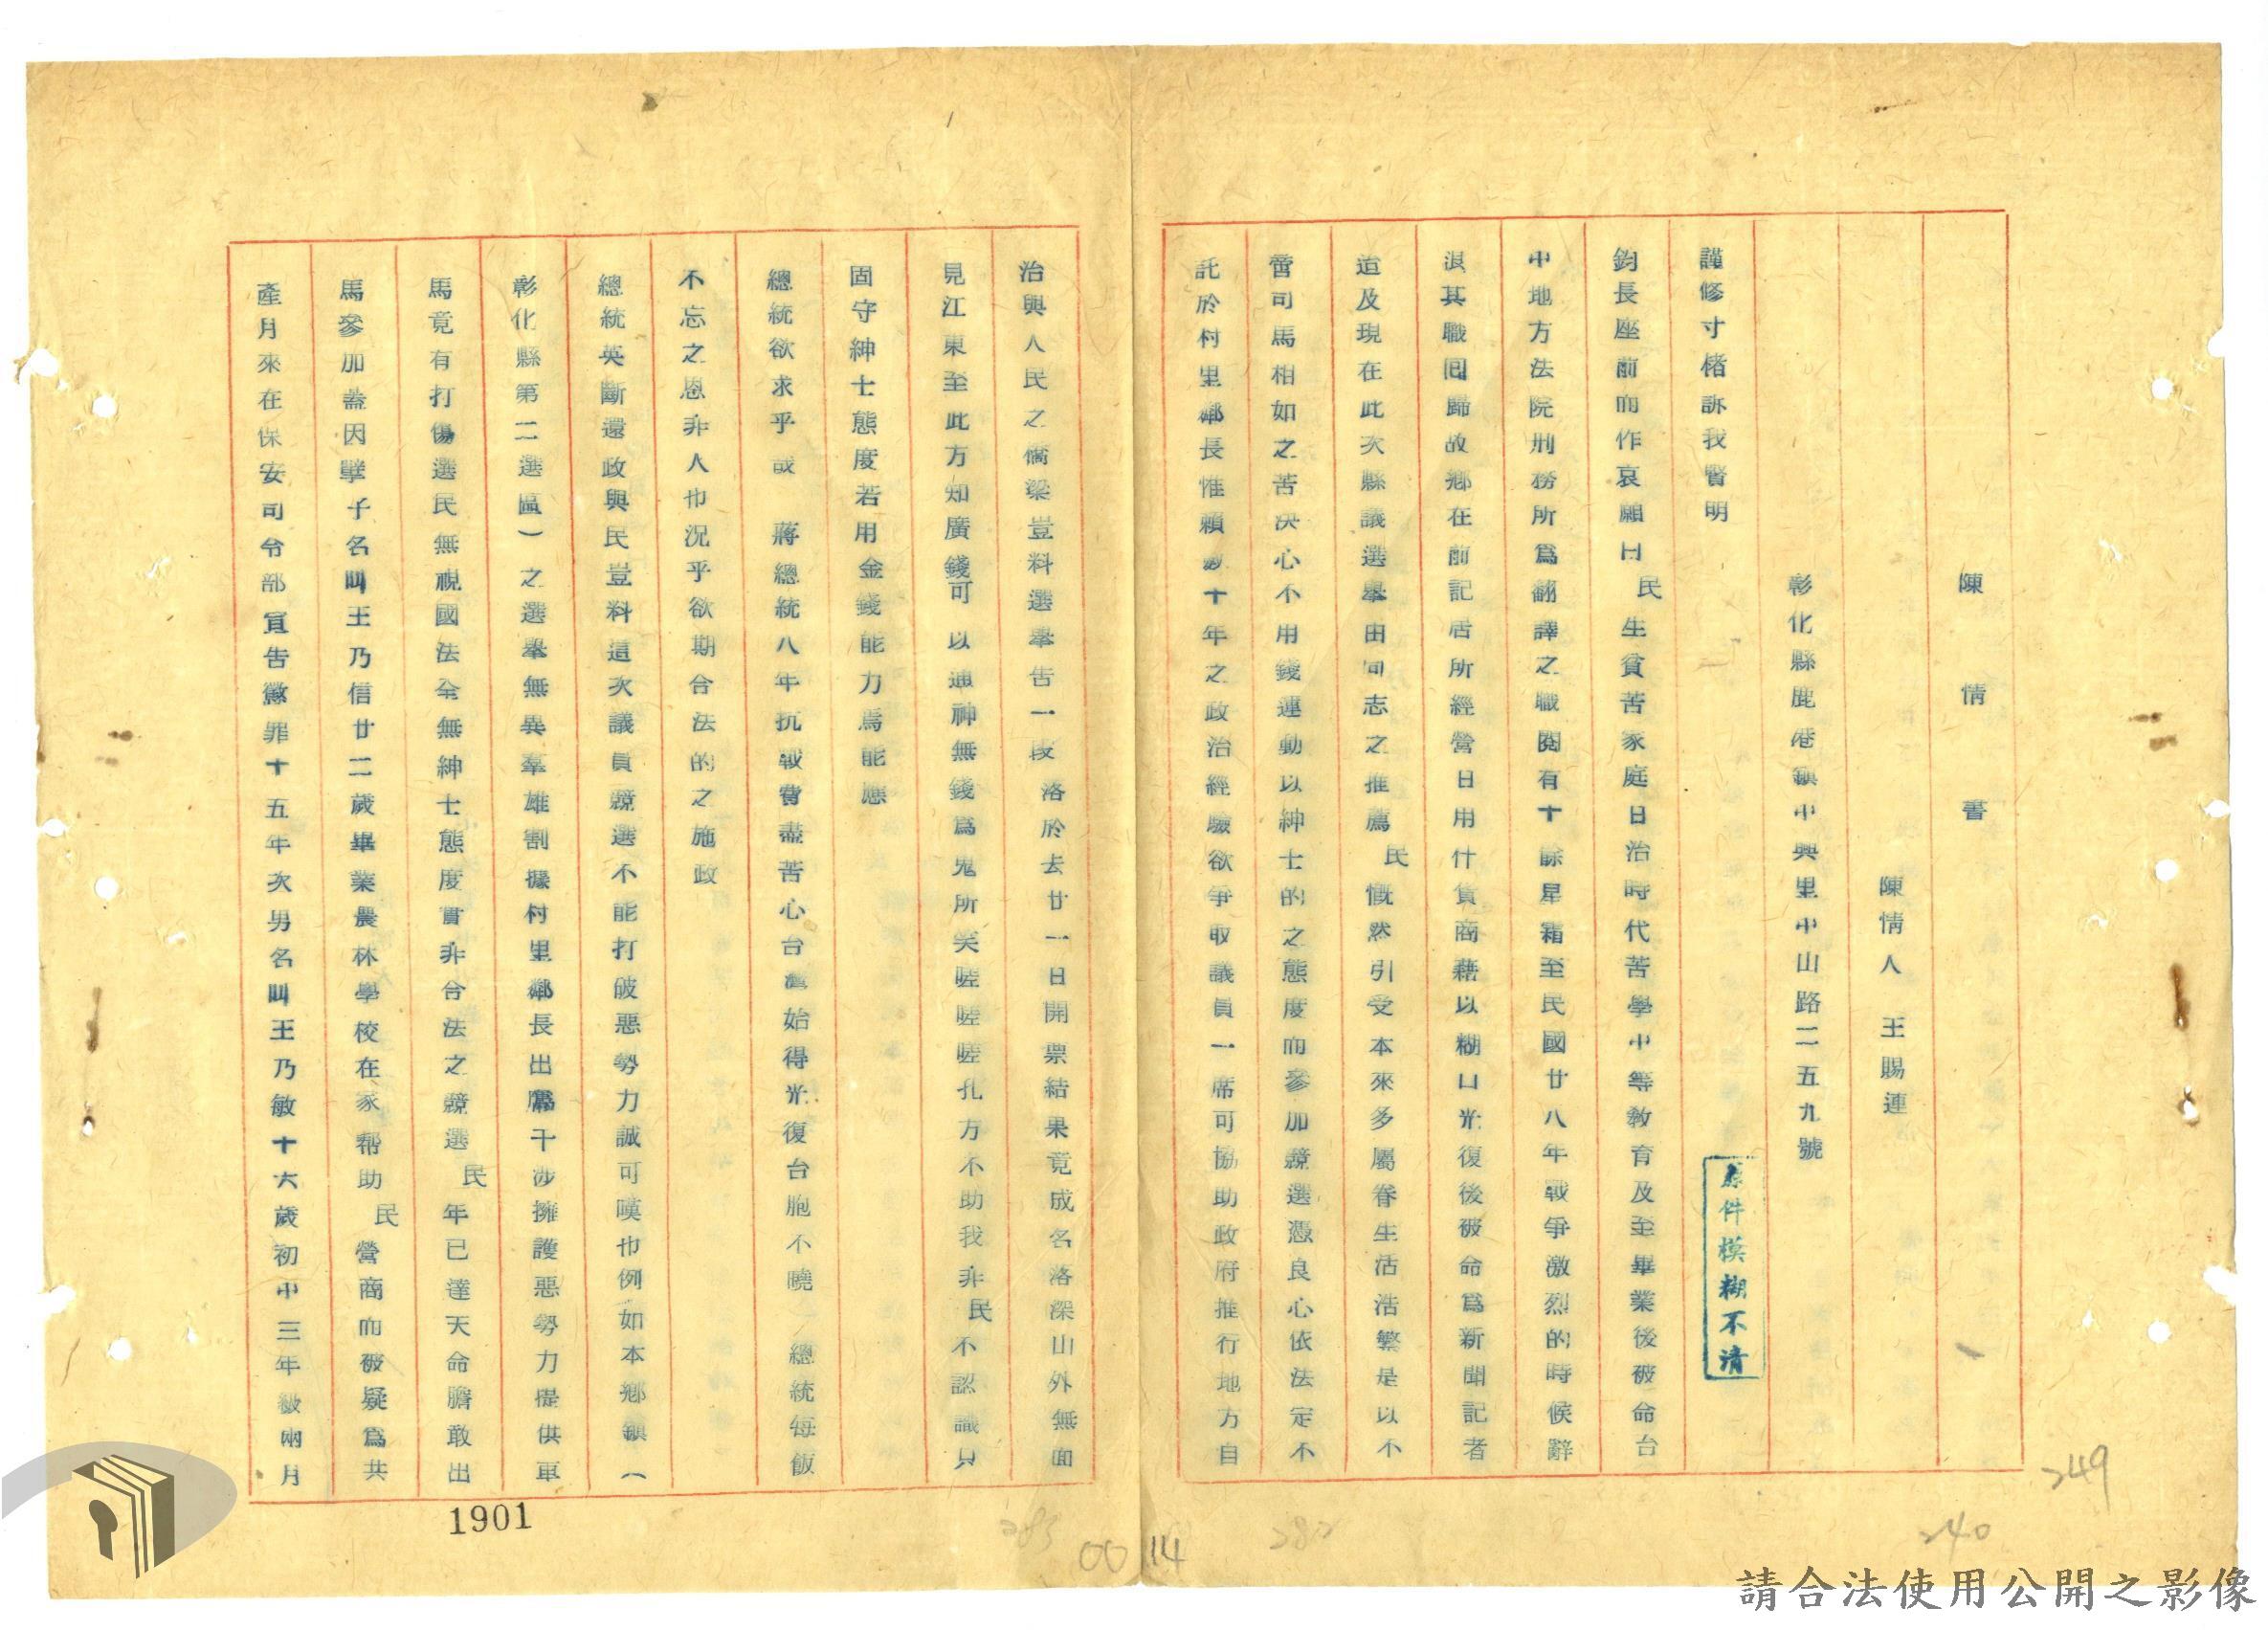 陳情書
陳情人 王賜連
彰化縣鹿港鎮中興里中山路二五九號
謹修寸楮訴我賢明
鈞長座前而作哀願曰民生貧苦家庭日治時代苦學中等教育及至畢業後被命台
中地方法院刑務所為翻譯之職閱有十餘星霜至民國廿八年戰爭激烈的時候辭
退其職回歸故鄉在前記居所經營日用什貨商藉以糊口光復後被命為新聞記者
造及現在此次縣議選舉由同志之推薦民慨然引受本來多屬眷生活浩繁是以不
嘗司馬相如之苦決心不用錢運動以紳士的之態度而參加競選憑良心依法定不
託於村里鄰長惟賴數十年之政治經驗欲爭取議員一席可協助政府推行地方自
治與人民之僑樑豈料選舉告一段落於去廿一日開票結果竟成名洛深山外無面
見江東至此方知廣錢可以通神無錢為鬼所笑嗟嗟嗟孔方不助我非民不認識只
固守紳士態度若用金錢能力焉能應
總統欲求乎哉 蔣總統八年抗戰費盡苦心台灣始得光復台胞不曉 總統每飯
不忘之恩非人也況乎欲期合法的之施政
總統英斷還政與民豈料這次議員競選不能打破惡勢力誠可嘆也例如本鄉鎮(
彰化縣第二選區)之選舉無異羣雄割據村里鄰長出為干涉擁護惡勢力提供車
馬竟有打傷選民無視國法全無紳士態度實非合法之競選民年已達天命膽敢出
馬參加蓋因孽子名叫王乃信廿二歲畢業農林學校在家幫助民營商而被疑為共
產月來在保安司令部宣告懲罪十五年次男名叫王乃敏十六歲初中三年級兩月
原件模糊不清
1901
249
240
282
283
00114
請合法使用公開之影像